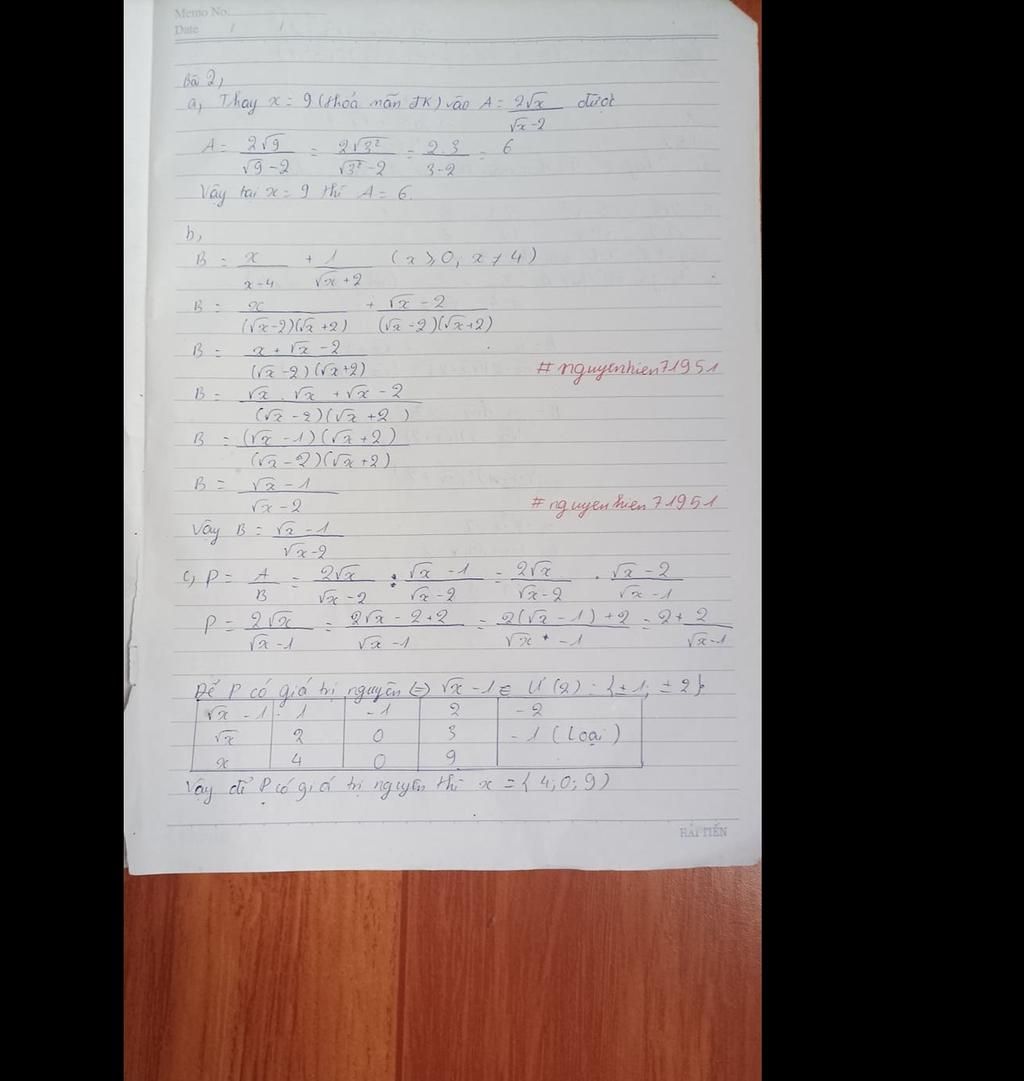 Memo No.
Date / /
Bài 2,
a, Thay x = 9 (thỏa mãn ĐK) vào A = 2√x / √x-2 được
A = 2√9 / √9-2 = 2√3² / √3²-2 = 2.3 / 3-2 = 6
Vậy tại x = 9 thì A = 6.
b,
B = x / x-4 + 1 / √x+2 (x ≥ 0, x ≠ 4)
B = x / (√x-2)(√x+2) + √x-2 / (√x-2)(√x+2)
B = x+√x-2 / (√x-2)(√x+2)
#nguyenhien71951
B = √x.√x+√x-2 / (√x-2)(√x+2)
B = (√x-1)(√x+2) / (√x-2)(√x+2)
B = √x-1 / √x-2
#nguyenhien71951
Vậy B = √x-1 / √x-2
c, P = A / B = 2√x / √x-2 : √x-1 / √x-2 = 2√x / √x-2 . √x-2 / √x-1
P = 2√x / √x-1 = 2√x-2+2 / √x-1 = 2(√x-1)+2 / √x-1 = 2+ 2 / √x-1
Để P có giá trị nguyên (=) √x-1 ∈ Ư(2) = {±1; ±2}
√x-1 1 -1 2 -2
√x 2 0 3 -1 (Loại)
x 4 0 9
Vậy để P có giá trị nguyên thì x = {4;0;9)
HẢI TIẾN